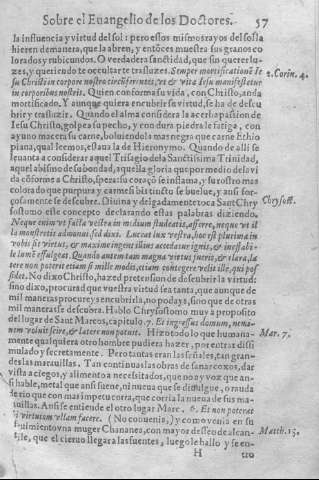 Sobre el Euangelio de los Doctores. 57
la influencia y virtud del sol: pero estos mismos rayos del sol la
hieren de manera, que la abren, y entonces muestra sus granos co
lorados y rubicundos. O verdadera sanctidad, que sin querer lu-
zes, y queriendote occultarte trasluzes. Semper mortificationē Ie
su Christi in corpore nostro circūferentes, vt & vita Iesu manifestetur
in corporibus nostris. Quien conforma su vida, con Christo, anda
mortificado. Y aunque quiera encubrir su virtud, se ha de descu
brir y trasluzir. Quando el alma considera la acerba passion de
Iesu Christo, golpea su pecho, y con dura piedra le fatiga, con
ayuno macera su carne, boluiendola mas negra que carne Ethio
piana, qual leemos, estaua la de Hieronymo. Quando de alli se
leuanta a considerar aquel Trisagio de la Sanctissima Trinidad,
aquel abismo de su bondad, aquella gloria que por medio de la vi
da cōforme a Christo, espera: su coraçō se inflama, y su rostro mas
colorado que purpura y carmesi bis tincto se buelue, y aũ si for-
çosamente se descubre. Diuina y delgadamente toca Sant Chry
sostomo este concepto declarando estas palabras diziendo.
Neque enim vt facta vestra in medium studeatis, afferre, neque vt il
la monstretis admonui, sed dixi. Luceat lux vestra, hoc est plurima in
vobis sit virtus, & maxime ingens illius accedatur ignis, & ineffabi-
le lumē effulgeat. Quando autem tam magna virtus fuerit, & clara, la
tere non poterit etiam si mille modis, etiam contegere velit ille, qui pos
sidet. No dixo Christo, hazed pretension de descubrir la virtud:
sino dixo, procurad que vuestra virtud sea tanta, que aunque de
mil maneras procureys encubrirla, no podays, sino que de otras
mil maneras se descubra. Hablo Chrysostomo muy a proposito
del lugar de Sant Marcos, capitulo. 7. Et ingressus domum, nemi-
nem voluit scire, & latere non potuit. Hizo todo lo que humana-
mente qualquiera otro hombre pudiera hazer, por entrar dissi
mulado y secretamente. Pero tantas eran las señales, tan gran-
des las marauillas. Tan continuas las obras de sanar coxos, dar
vista a ciegos, y alimento a necessitados, que no ay voz que an-
si hable, metal que ansi suene, ni nueua que se diuulgue, o rauda
de rio que con mas impetu corra, que corria la nueua de sus ma-
rauillas. Ansi se entiende el otro lugar Marc. 6. Et non poterat
ibi virtutem vllam facere. (No conuenia,) y como venia en su
seguimiento vna muger Chananea, con mayor desseo de alcan-
çarle, que el cieruo llegar a las fuentes, luego le hallo y se en-
H tro
2. Corin. 4.
Chrysost.
Mar. 7.
Matth. 15.